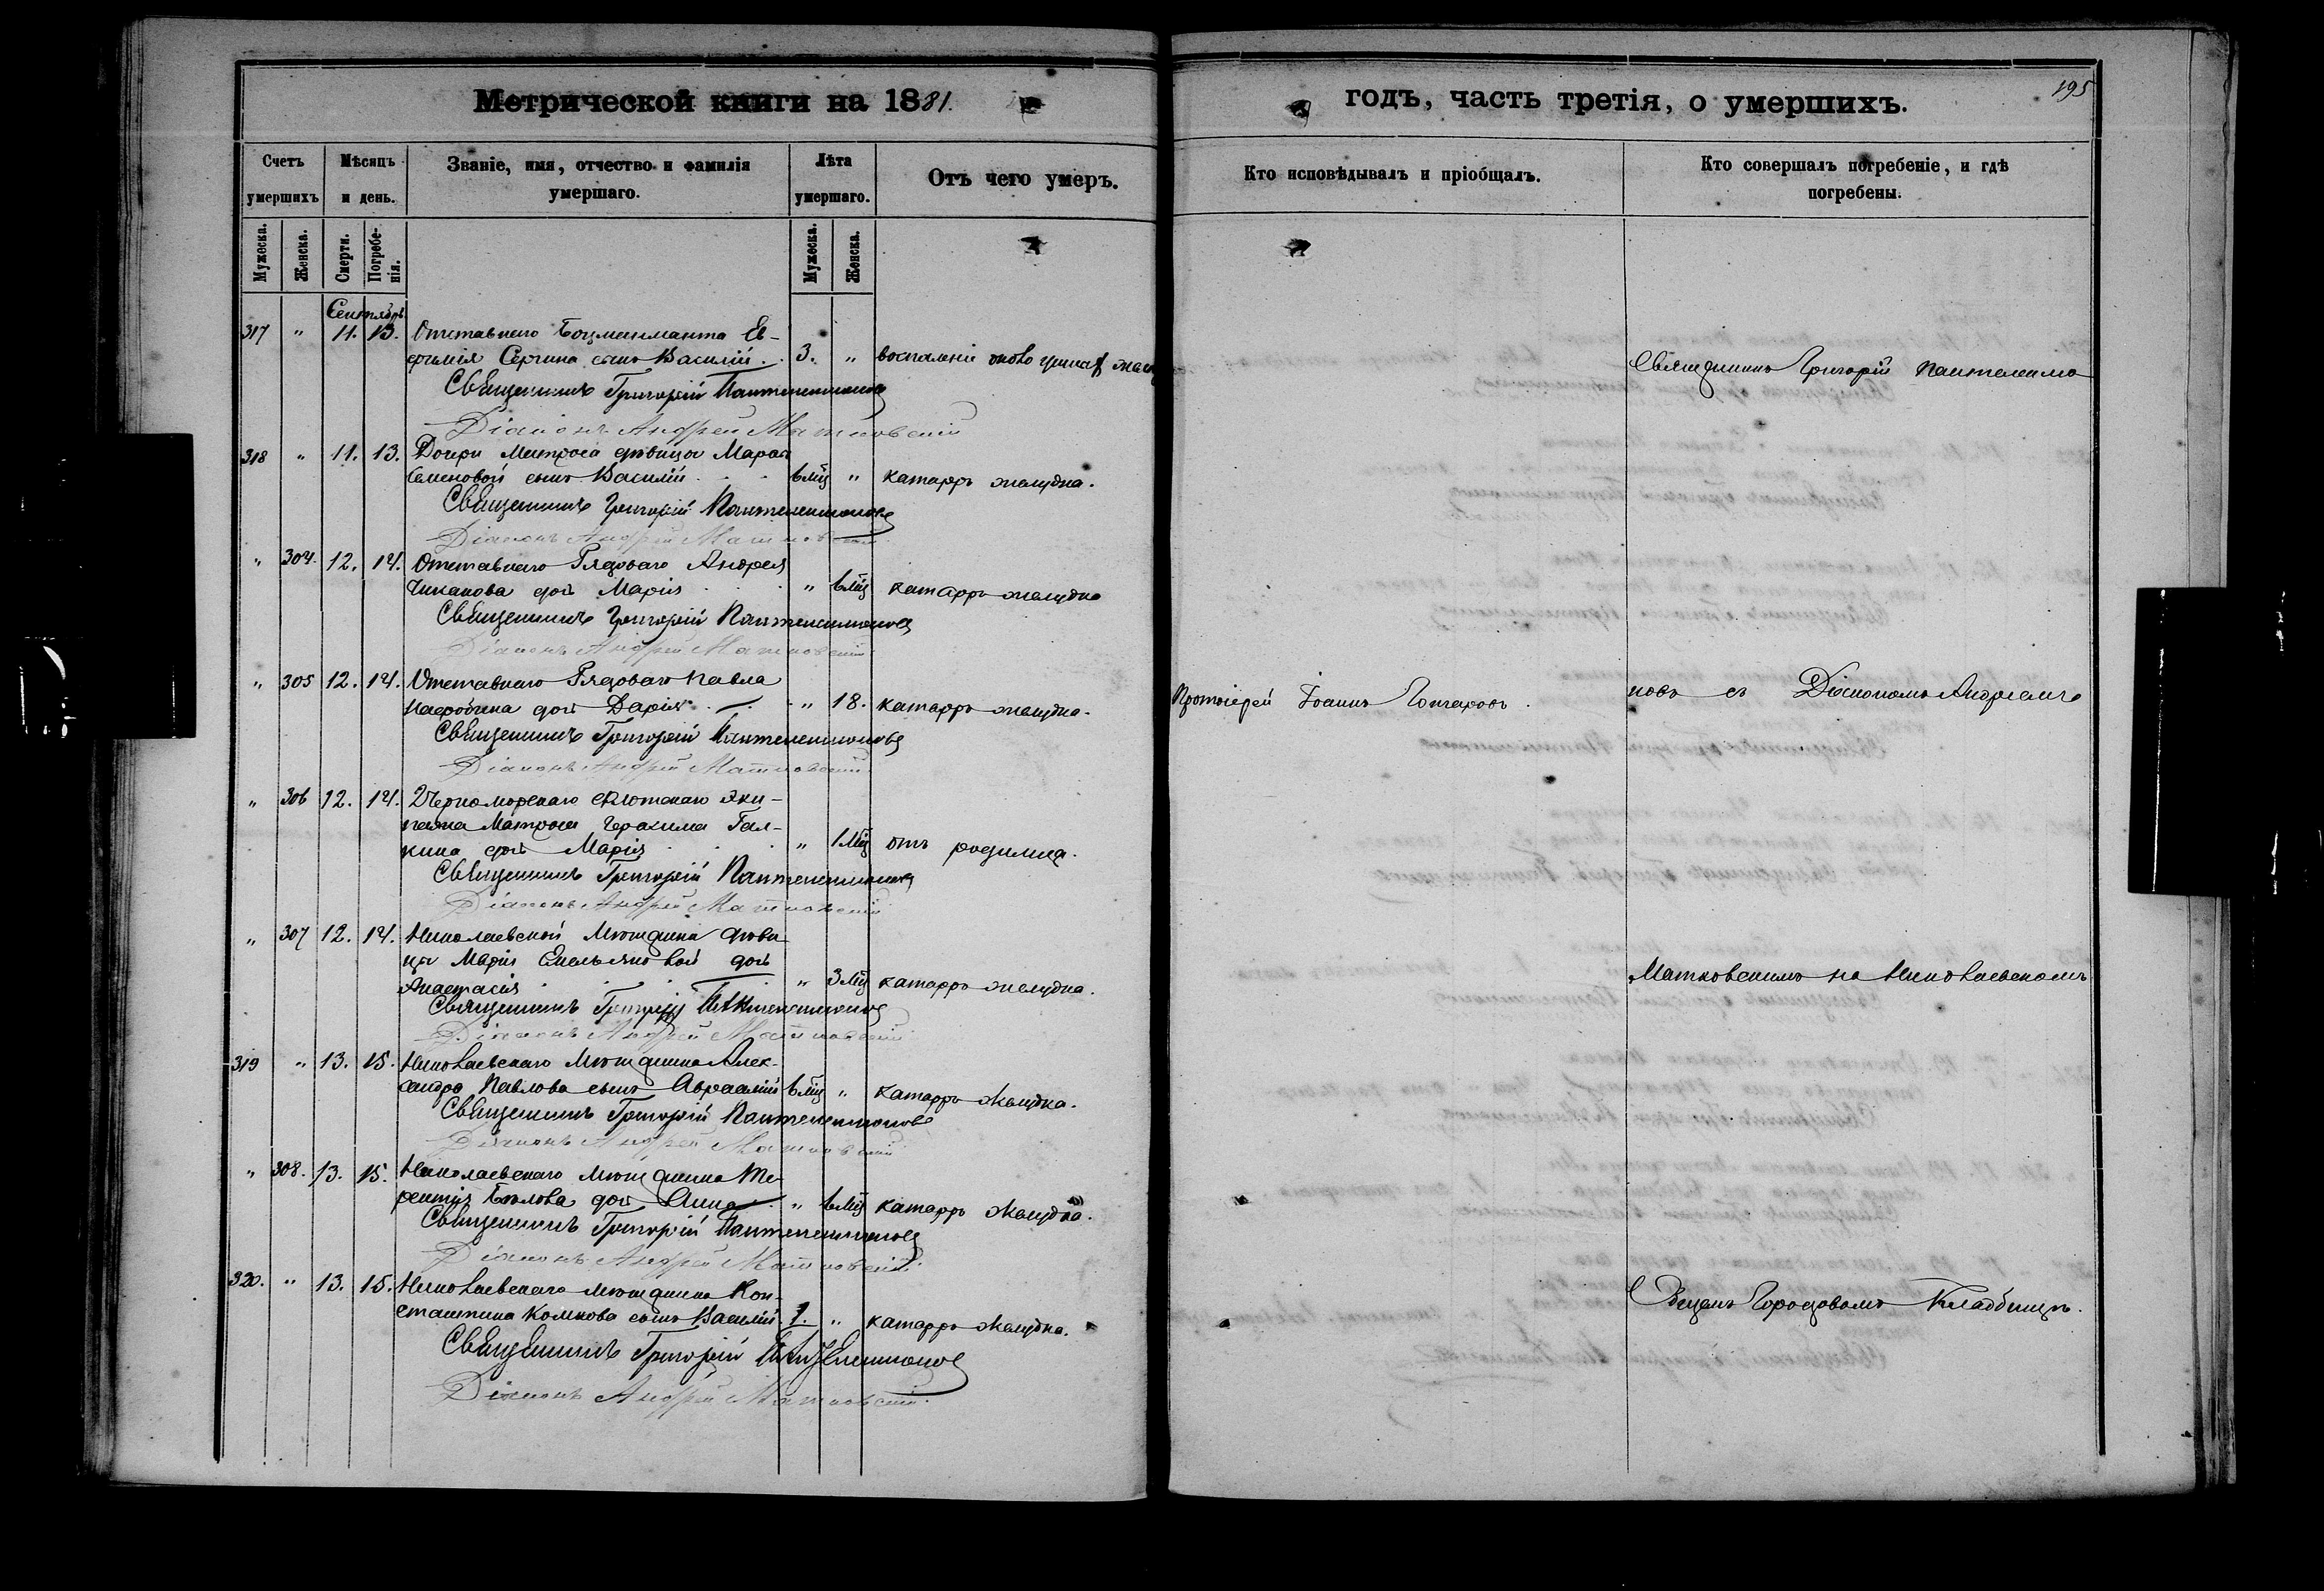 Метрической книги на 1881.
Счетъ умершихъ
Мѣсяцъ и день.
Званіе, имя, отчество и фамилія умершаго.
Лѣта умершаго.
Отъ чего умеръ.
Мужеска.
Женска.
Смерти.
Погребенія.
Мужеска.
Женска.
Сентябрь
317 " 11. 13. Отставнаго Боцманмата Ев-
фимія сынъ Василій 3. " воспаленіе
Священникъ Григорій Пантелеимоновъ
Діаконъ Андрей Матковскій
318 " 11. 13. Дочери Матроса дѣвицы Маріи
Семеновой сынъ Василій 6 мц " катарръ желудка.
Священникъ Григорій Пантелеимоновъ
Діаконъ Андрей Матковскій
" 304. 12. 14. Отставнаго Рядоваго Андрея
Чиканова дочь Марія " 6 мц катарръ желудка
Священникъ Григорій Пантелеимоновъ
Діаконъ Андрей Матковскій
" 305 12. 14. Отставнаго Рядоваго Павла
дочь Дарія " 18. катарръ желудка.
Священникъ Григорій Пантелеимоновъ
Діаконъ Андрей Матковскій
" 306 12. 14. 2 Черноморскаго флотскаго эки-
пажа Матроса Герасима Гал-
кина дочь Марія " 1 мц отъ родимца.
Священникъ Григорій Пантелеимоновъ
Діаконъ Андрей Матковскій
" 307 12. 14. Николаевской Мѣщанки дѣви-
цы Маріи Емельяновой дочь
Анастасія " 3 мц катарръ желудка.
Священникъ Григорій Пантелеимоновъ
Діаконъ Андрей Матковскій
319 " 13. 15. Николаевскаго Мѣщанина Алек-
сандра Павлова сынъ Авраамій 6 мц " катарръ желудка.
Священникъ Григорій Пантелеимоновъ
Діаконъ Андрей Матковскій
" 308. 13. 15. Николаевскаго Мѣщанина Те-
рентія Бѣлова дочь Анна " 6 мц катарръ желудка.
Священникъ Григорій Пантелеимоновъ
Діаконъ Андрей Матковскій
320. " 13. 15. Николаевскаго мѣщанина Кон-
стантина Комкова сынъ Василій 1. " катарръ желудка.
Священникъ Григорій Пантелеимоновъ
Діаконъ Андрей Матковскій.
годъ, часть третія, о умершихъ.
195
Кто исповѣдывалъ и пріобщалъ.
Кто совершалъ погребеніе, и гдѣ погребены.
Священникъ Григорій Пантелеимо
Протоіерей Іоаннъ Гончаровъ.
новъ съ Діакономъ Андреемъ
Матковскимъ на Николаевскомъ
Общемъ Городовомъ Кладбищѣ.